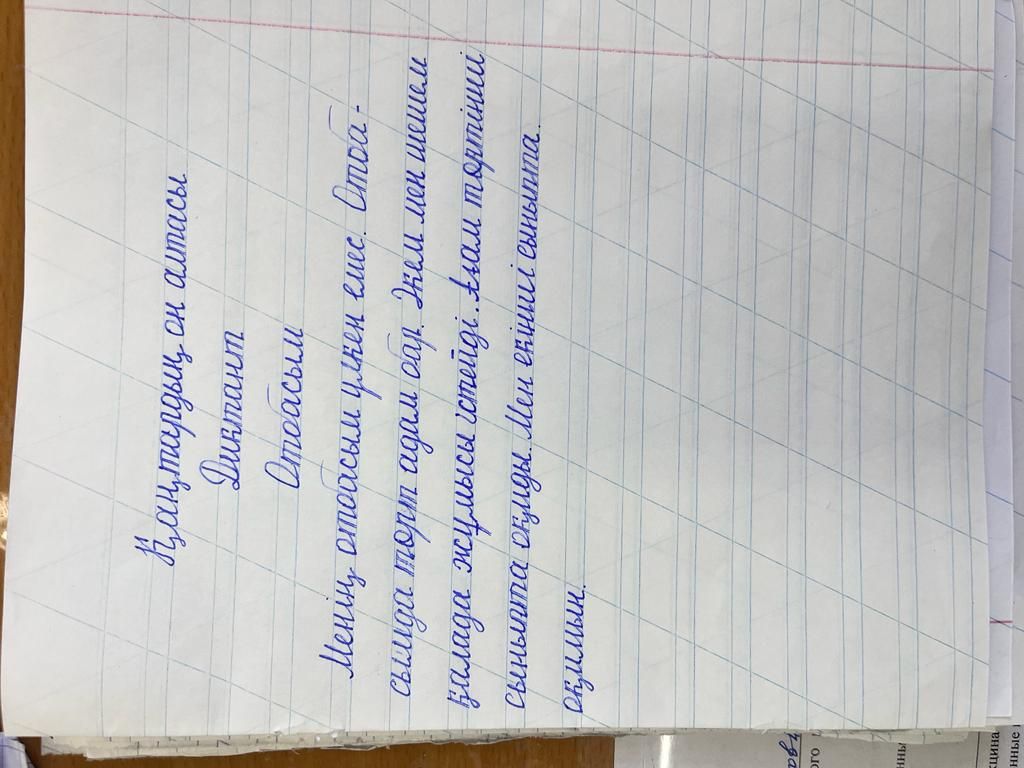 Қаңтардың он алтасы
Диктант
Отбасым
Менің отбасым үлкен емес. Отба-
сымда торт адам бар. Әкем мен шешем
қалада жұмыс істейді. Ағам тортінші
сыныпта оқиды. Мен екінші сыныпта
оқимын.